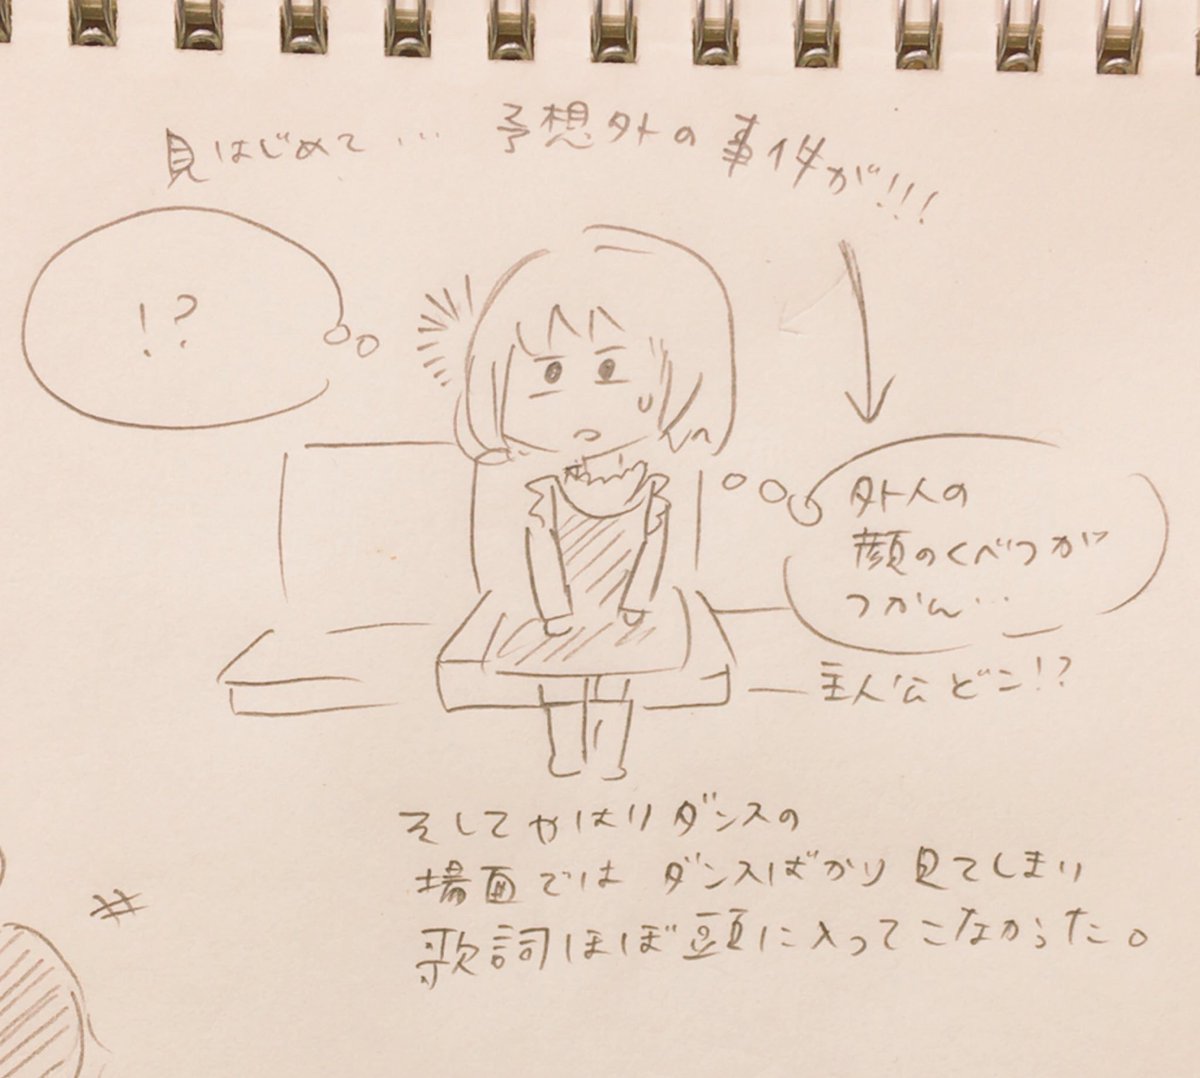 見はじめて… 予想外の事件が!!!
!?
外人の
顔のくべつが
つかん…
主人公どこ!?
そしてやはりダンスの
場面では ダンスばかり見てしまい
歌詞ほぼ頭に入ってこなかった。